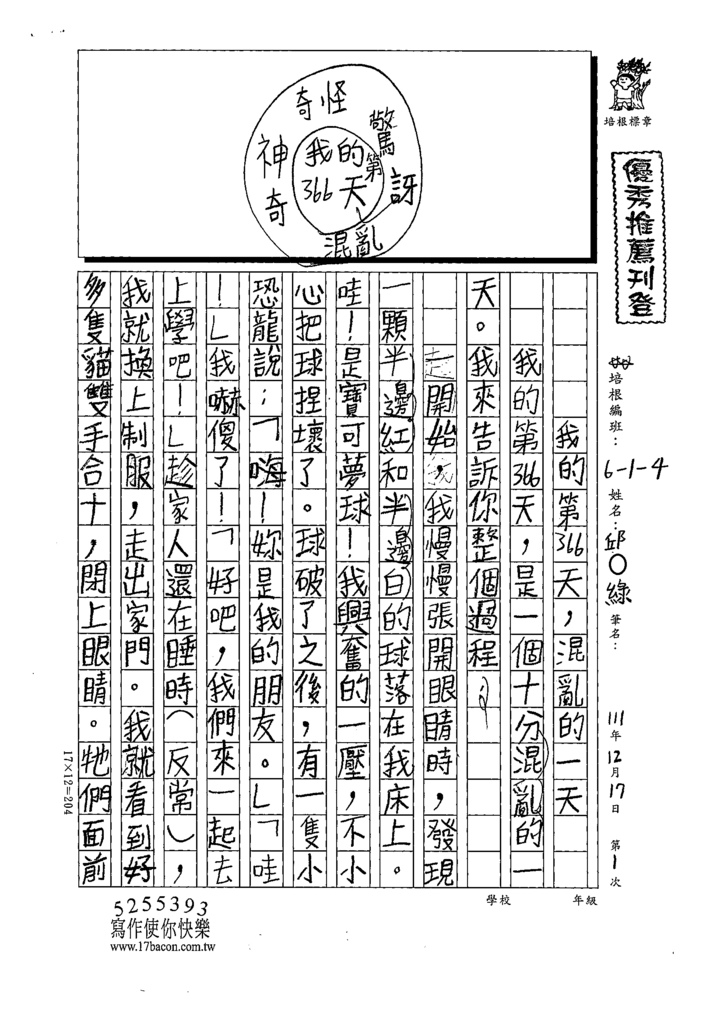 奇怪
驚訝
神奇
混亂
我的第366天
培根標章
優秀推薦刊登
培根編班：6-1-4
姓名：邱○綠
筆名：
111年12月17日 第1次
我的第366天，混亂的一天
我的第366天，是一個十分混亂的一
天。我來告訴你整個過程：
一開始，我慢慢張開眼睛時，發現
一顆半邊紅和半邊白的球落在我床上。
哇！是寶可夢球！我興奮的一壓，不小
心把球捏壞了。球破了之後，有一隻小
恐龍說：「嗨！妳是我的朋友。」「哇
！」我嚇傻了！「好吧，我們來一起去
上學吧！」趁家人還在睡時（反常），
我就換上制服，走出家門。我就看到好
多隻貓雙手合十，閉上眼睛。牠們面前
17×12=204
學校 年級
5255393
寫作使你快樂
www.17bacon.com.tw